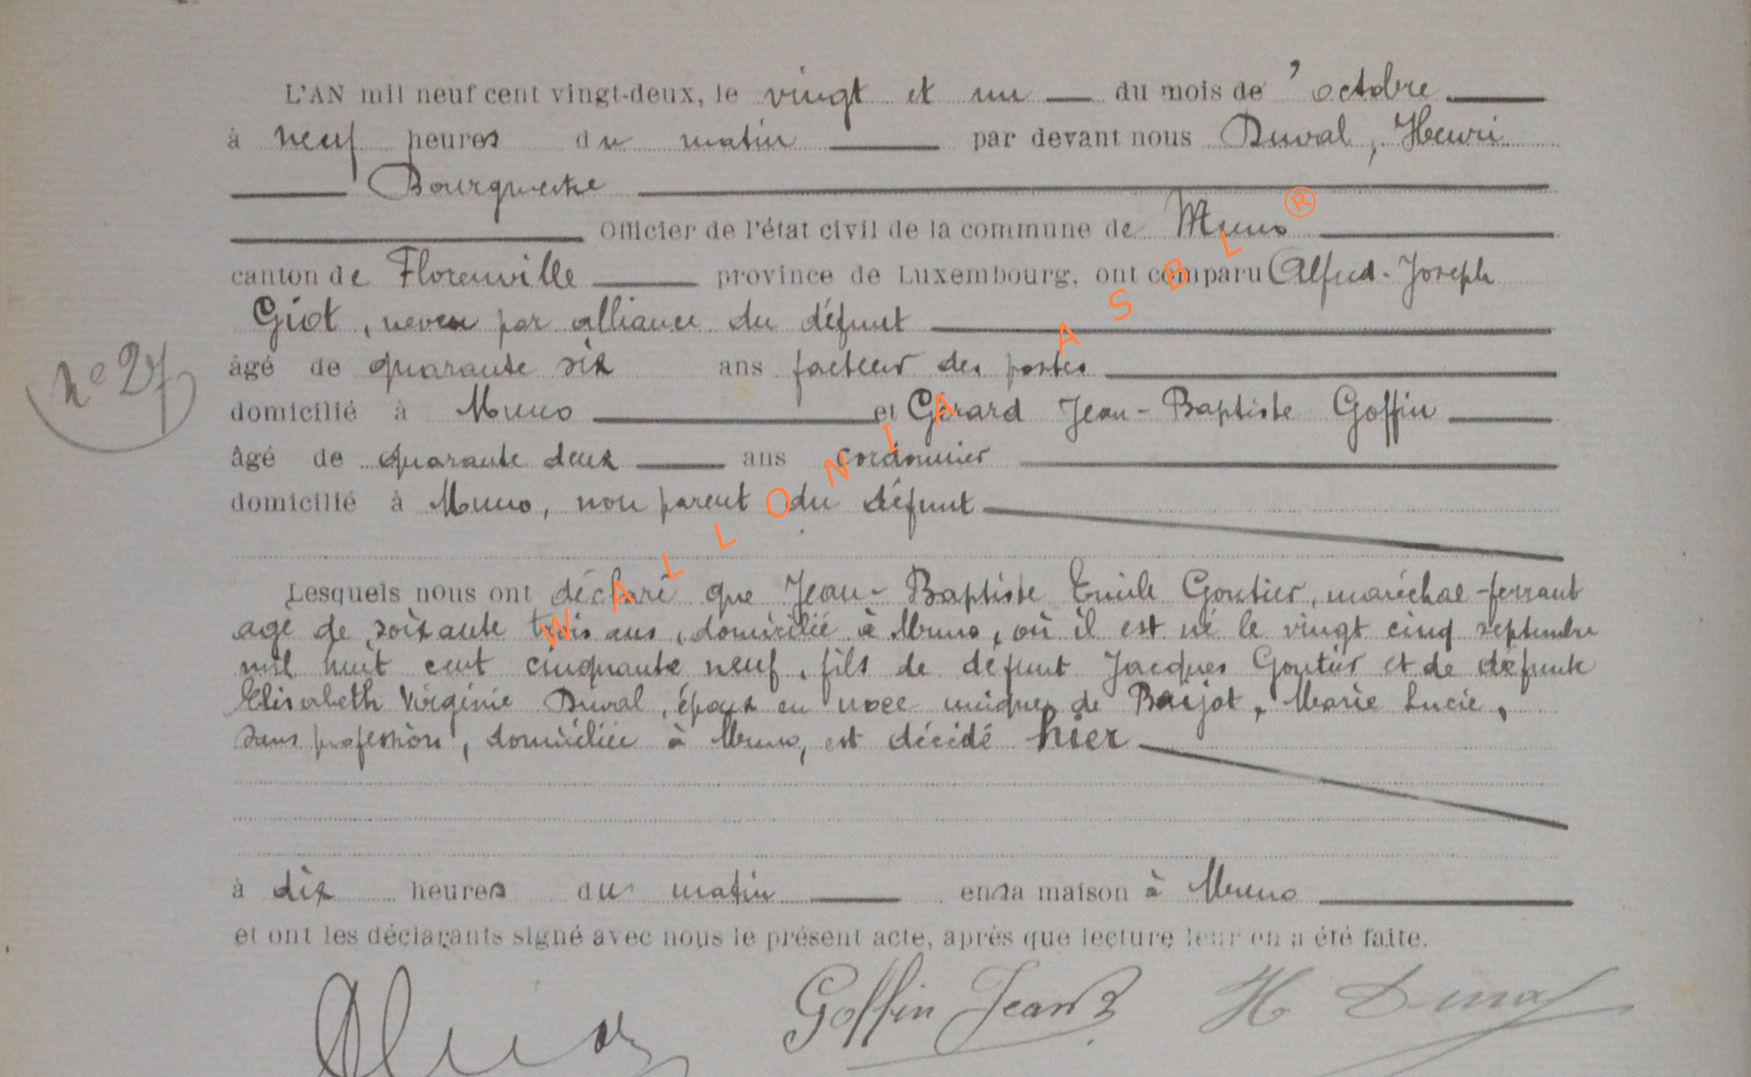 L'AN mil neuf cent vingt-deux, le vingt et un du mois de ' octobre
à neuf heures du matin par devant nous Duval, Henri
Bourgmestre
Officier de l'état civil de la commune de Muno
canton de Florenville province de Luxembourg, ont comparu Alfred-Joseph
Giot, neveu par alliance du défunt
n° 27
âgé de quarante six ans facteur des postes
domicilié à Muno et Gérard Jean-Baptiste Goffin
âgé de quarante deux ans cordonnier
domicilié à Muno, non parent du défunt
Lesquels nous ont déclaré que Jean-Baptiste Emile Goutier, maréchal-ferrant
agé de soixante trois ans, domicilié à Muno, où il est né le vingt cinq septembre
mil huit cent cinquante neuf, fils de défunt Jacques Goutier et de défunte
Elisabeth Virginie Duval, époux en noce unique de Baijot, Marie Lucie,
sans profession, domiciliée à Muno, est décédé hier
à dix heures du matin en sa maison à Muno
et ont les déclarants signé avec nous le présent acte, après que lecture leur en a été faite.
Goffin Jean B H Duval
WALLONIA ASBL ®